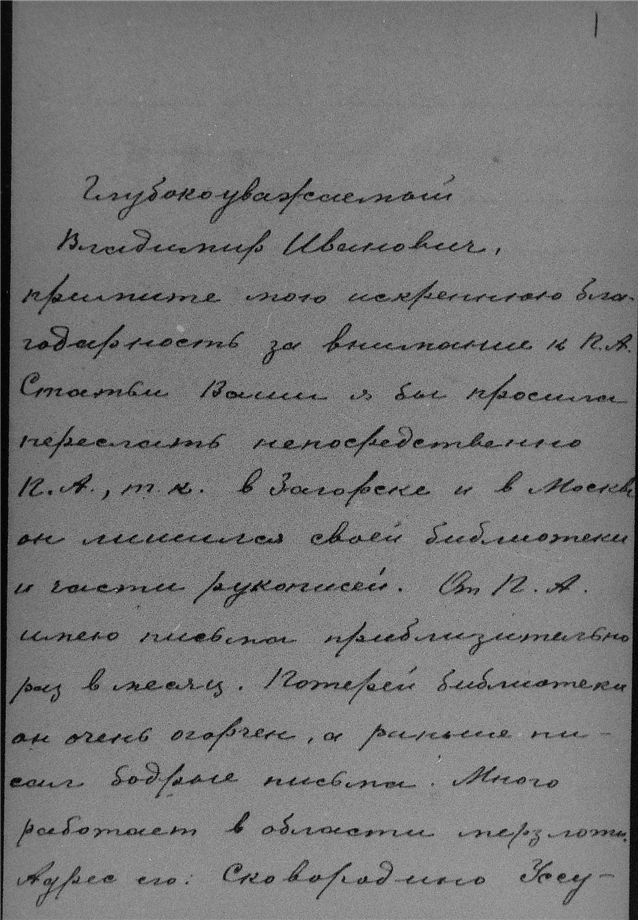 1
Глубокоуважаемый
Владимир Иванович,
примите мою искреннюю бла-
годарность за внимание к П.А.
Статьи Ваши я бы просила
переслать непосредственно
П.А., т.к. в Загорске и в Москве
он лишился своей библиотеки
и части рукописей. От П.А.
имею письма приблизительно
раз в месяц. Потерей библиотеки
он очень огорчен, а раньше пи-
сал бодрые письма. Много
работает в области мерзлоты.
Адрес его: Сковородино Уссу-